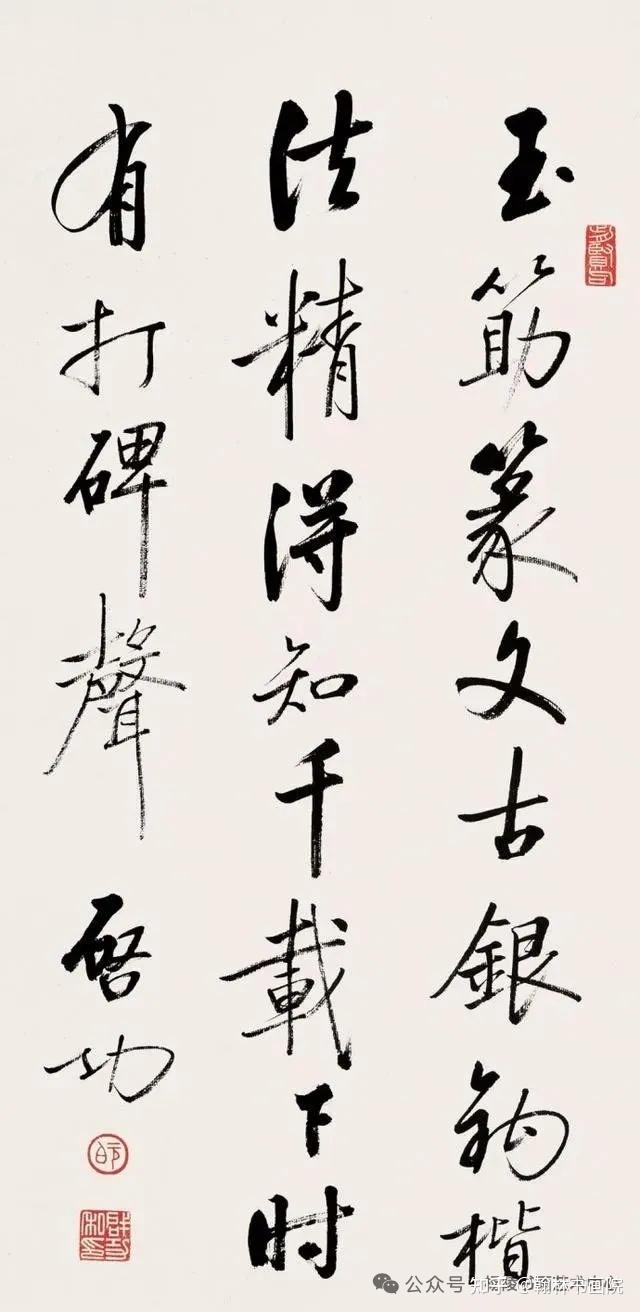 玉筯篆文古銀鈎楷
法精得知千載下时
有打碑聲
啓功
知乎 @翰林书画院